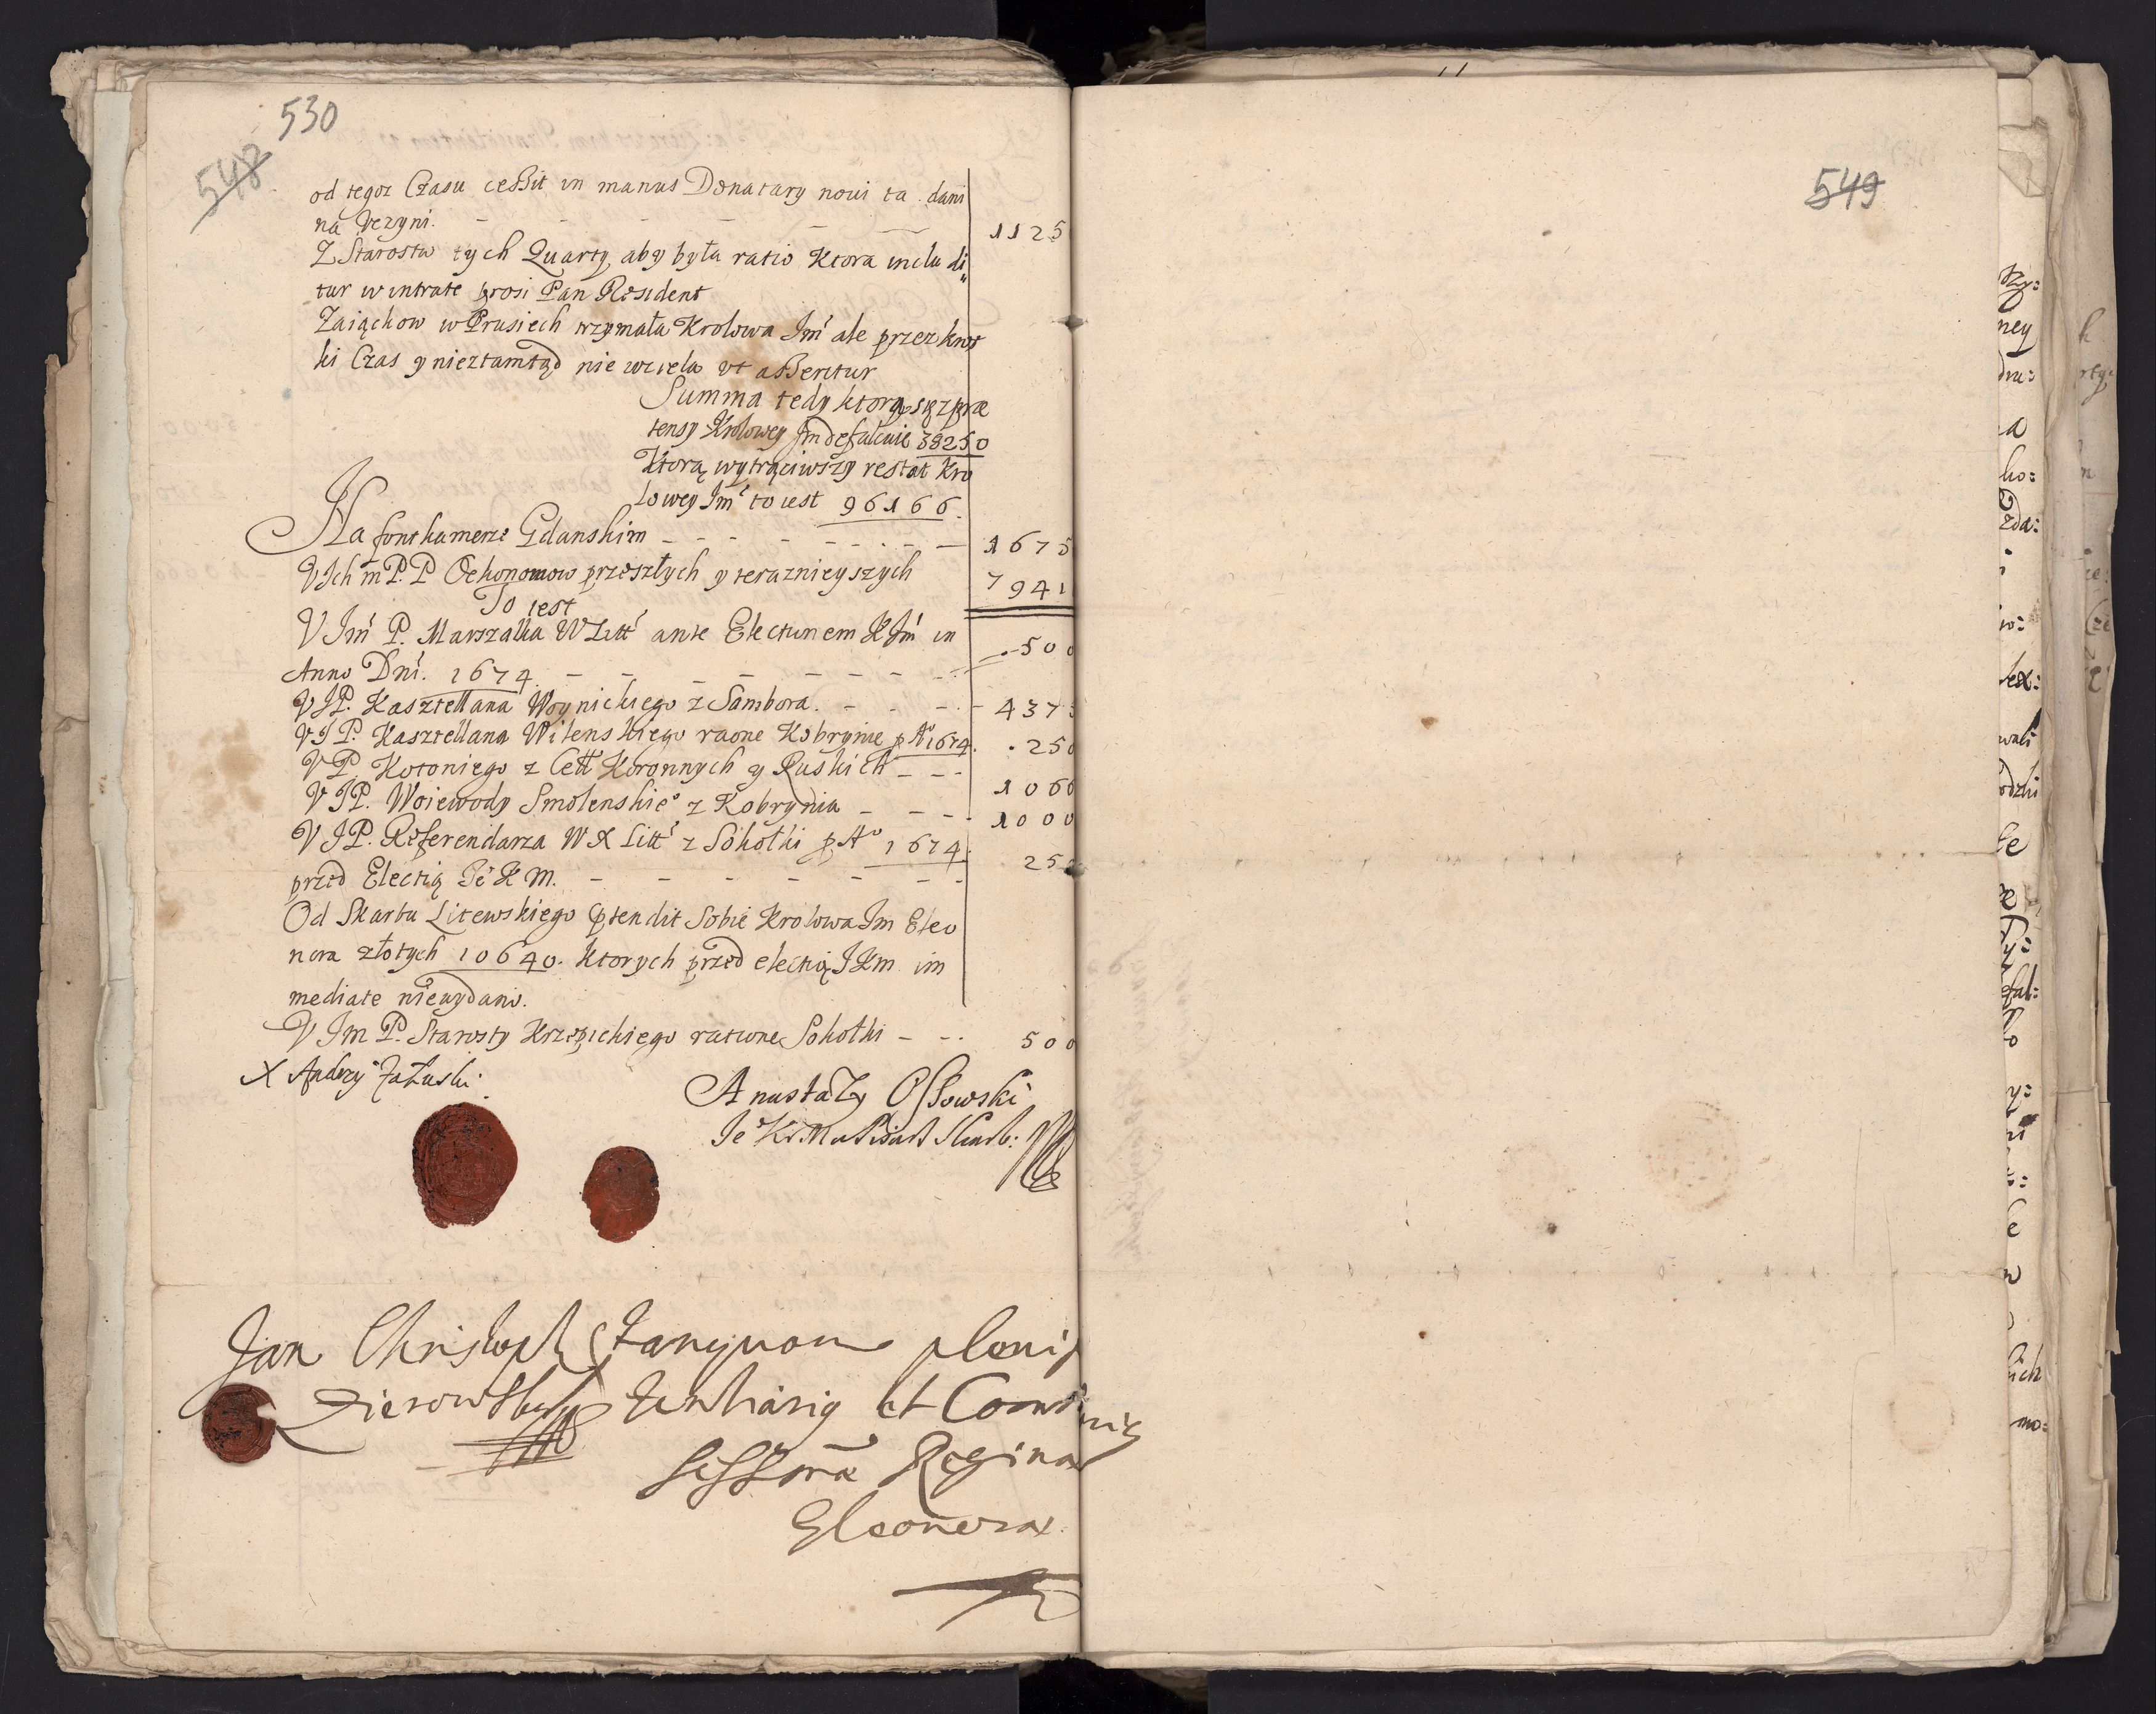 530
548
od tegoz Czasu cessit in manus Donatary noui ta dani
na Vczyni. 1125
Z Starostw tych Quarty, aby była ratio Ktora inclu di
tur w intrate prosi Pan Resident
Zaiąckow w Prusiech trzymała Krolowa Jm ale przez krot
ki Czas y nieztamtąd nie wzieła vt asseritur
Summa tedy ktora się z præ
tensy Krolowey Jm defalcuie 38250
Ktorą wytrąciwszy restat Kro
lowey Jm to iest 96166.
Na fontkamerze Gdanskim 1675
V Ich m P.P Oekonomow przeszłych y teraznieyszych 7941
To iest
V Jm P. Marszałka W Litt ante Electionem K Jm in 500
Anno Dni. 1674.
V J P. Kasztellana Woynickiego z Sambora. 437
V J P. Kasztellana Wilenskiego raone Kobrynie p Ao 1674. 250
V P. Kotoniego z Cell Koronnych y Ruskich 1066
V J P. Woiewody Smolenskie z Kobrynia 1000
V J P. Referendarza W X Litt z Sokołki p Ao 1674. 250
przed Electią Je K M.
Od Skarbu Litewskiego ptendit Sobie Krolowa Jm Eleo
nora złotych 10640. Ktorych przed electią J K m im
mediate niewydano.
V Jm P. Starosty Krzepickiego ratione Sokołki 500
X Andrzy Załuski
Anastazy Ossowski
Je Kr M Pisarz Skarb:
Jan Christoph tanquam pleni
Zierowsky tentiarig et Comis
Regina
Eleonora
549